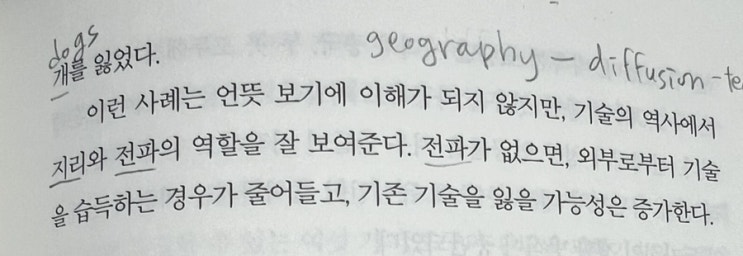 dogs
개를 잃었다.
geography - diffusion-te
이런 사례는 언뜻 보기에 이해가 되지 않지만, 기술의 역사에서
지리와 전파의 역할을 잘 보여준다. 전파가 없으면, 외부로부터 기술
을 습득하는 경우가 줄어들고, 기존 기술을 잃을 가능성은 증가한다.